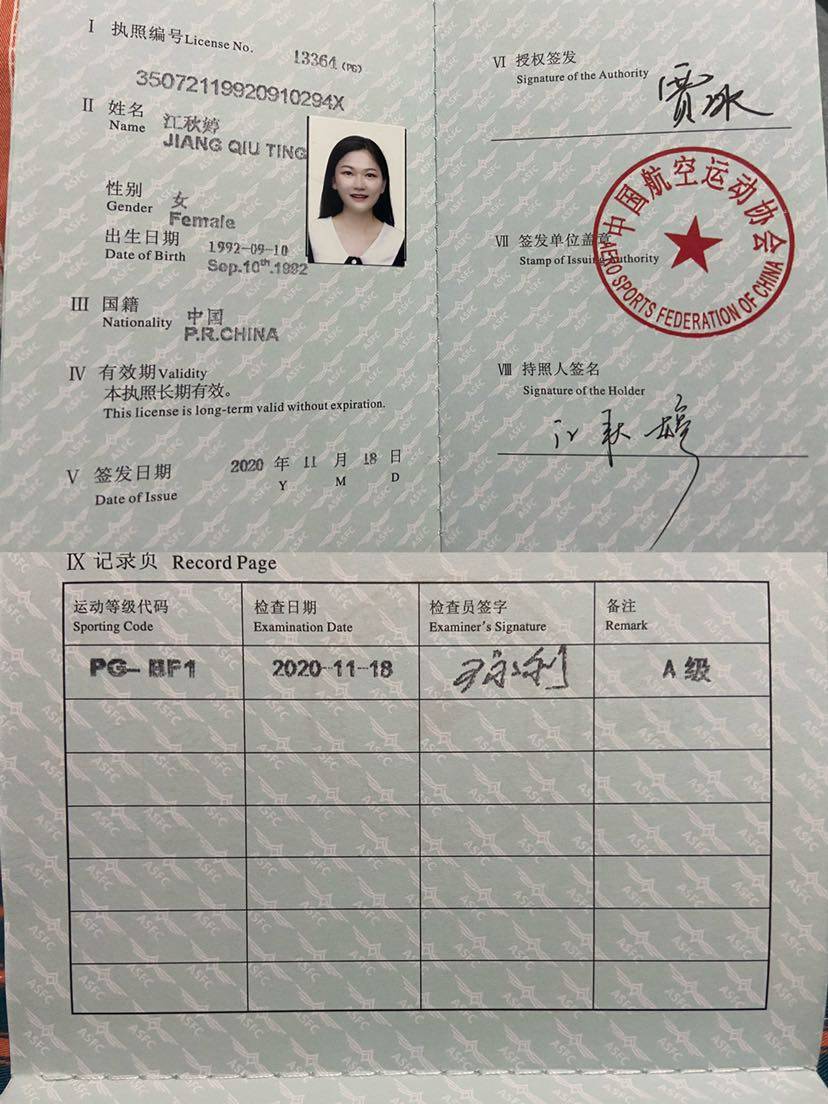 I 执照编号License No. 13364 (PG)
35072119920910294X
II 姓名 江秋婷
Name JIANG QIU TING
性别 女
Gender Female
出生日期 1992-09-10
Date of Birth Sep.10th.1992
III 国籍 中国
Nationality P.R.CHINA
IV 有效期Validity
本执照长期有效。
This license is long-term valid without expiration.
V 签发日期 2020 年 11 月 18 日
Date of Issue Y M D
VI 授权签发
Signature of the Authority
贾冰
中国航空运动协会
VII 签发单位盖章
Stamp of Issuing Authority
AERO SPORTS FEDERATION OF CHINA
VIII 持照人签名
Signature of the Holder
江秋婷
IX 记录页 Record Page
运动等级代码 检查日期 检查员签字 备注
Sporting Code Examination Date Examiner's Signature Remark
PG- BF1 2020-11-18 A 级